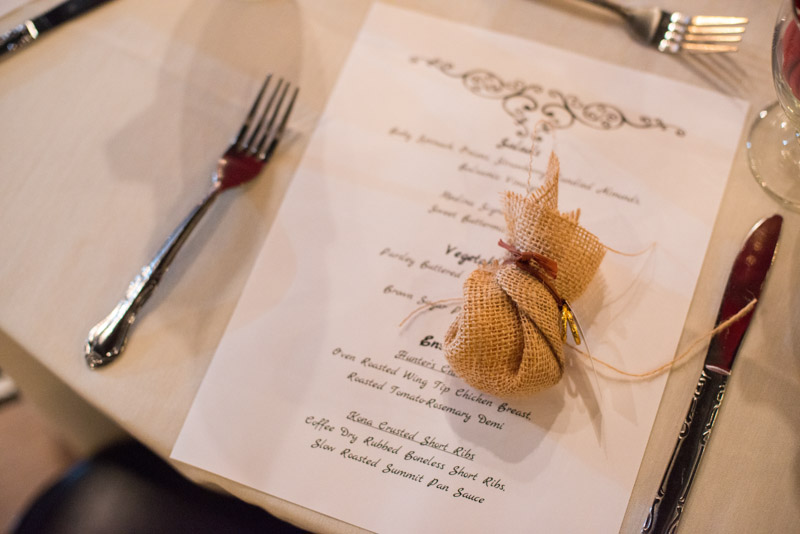 Salads
Baby Spinach, Strawberry, Toasted Almonds,
Balsamic
Sweet Buttermilk
Vegetabl
Parsley Buttered
Brown Sugar
En
Hunter's C
Oven Roasted Wing Tip Chicken Breast,
Roasted Tomato-Rosemary Demi
Kona Crusted Short Ribs
Coffee Dry Rubbed Boneless Short Ribs,
Slow Roasted Summit Pan Sauce